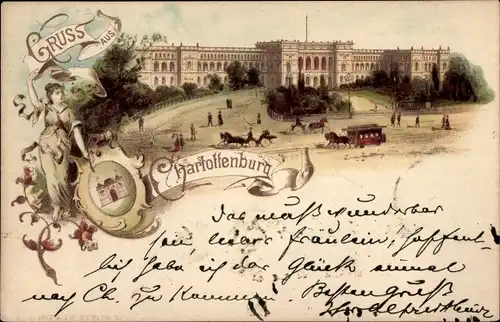 GRUSS AUS
Charlottenburg
Das muß wunderbar
sein, liebes Fräulein, hoffent-
lich habe ich das Glück einmal
nach Ch. zu kommen. Besten Gruß